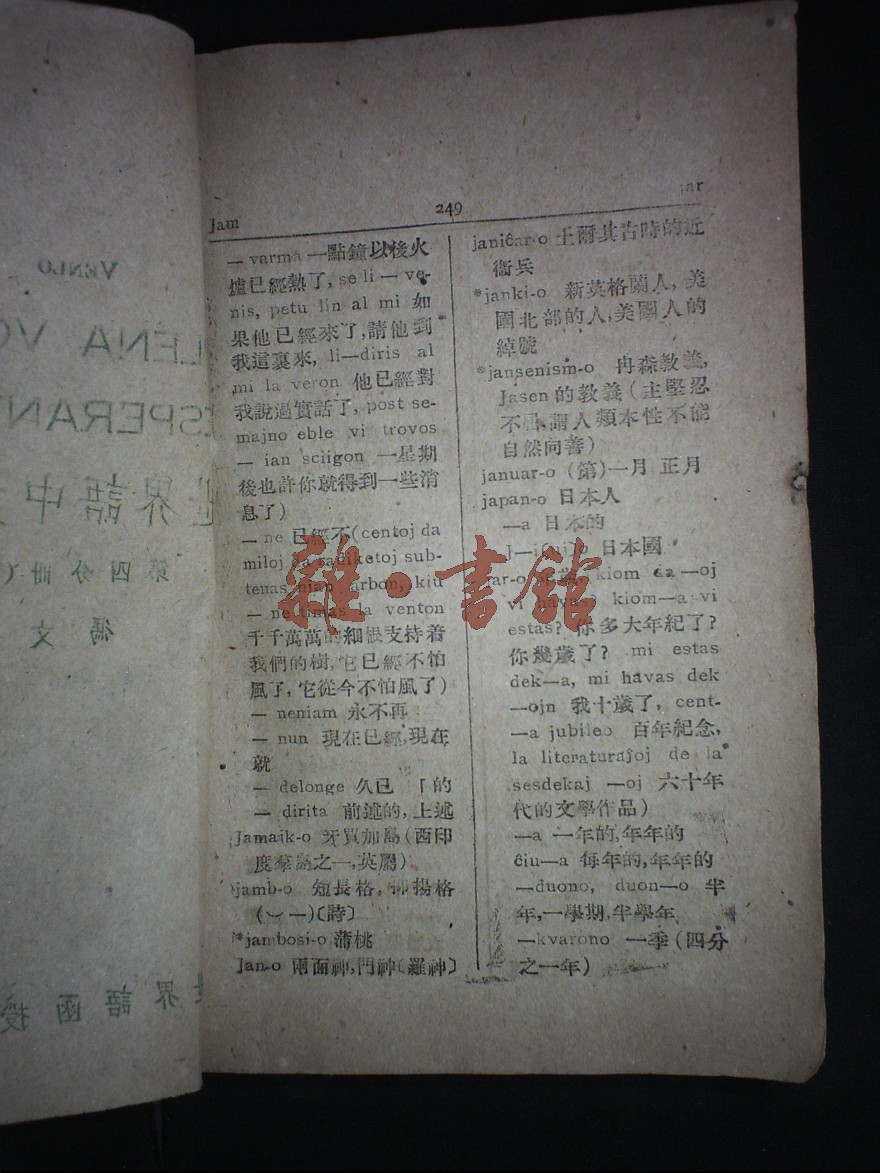 VENLO
LENA VO
ESPERAN
世界語中
第四分冊
馮文
世界語函授
Jam
249
ar
— varma 一點鐘以後火
爐已經熱了, se li — ve-
nis, petu lin al mi 如
果他已經來了,請他到
我這裏來, li—diris al
mi la veron 他已經對
我說過實話了, post se-
majno eble vi trovos
— ian sciigon 一星期
後也許你就得到一些消
息了)
— ne 已經不(centoj da
miloj da radiketoj sub-
tenas nian arbon, kiu
— ne timas la venton
千千萬萬的細根支持着
我們的樹,它已經不怕
風了,它從今不怕風了)
— neniam 永不再
— nun 現在已經,現在
就
— delonge 久已 「的
— dirita 前述的,上述
Jamaik-o 牙買加島(西印
度羣島之一,英屬)
jamb-o 短長格, 抑揚格
(⏑ —)〔詩〕
*jambosi-o 蒲桃
Jan-o 兩面神,門神〔羅神〕
janiĉar-o 土爾其古時的近
衞兵
*janki-o 新英格蘭人, 美
國北部的人,美國人的
綽號
*jansenism-o 冉森教義,
Jasen 的教義(主堅忍
不 謂人類本性不能
自然向善)
januar-o (第)一月 正月
japan-o 日本人
—a 日本的
J—i 日本國
jar-o kiom da —oj
vi havas? kiom—a vi
estas? 你多大年紀了?
你幾歲了? mi estas
dek—a, mi havas dek
—ojn 我十歲了, cent-
—a jubileo 百年紀念,
la literaturaĵoj de la
sesdekaj —oj 六十年
代的文學作品)
—a 一年的,年年的
ĉiu—a 每年的,年年的
—duono, duon—o 半
年,一學期,半學年
—kvarono 一季(四分
之一年)
雜·書館